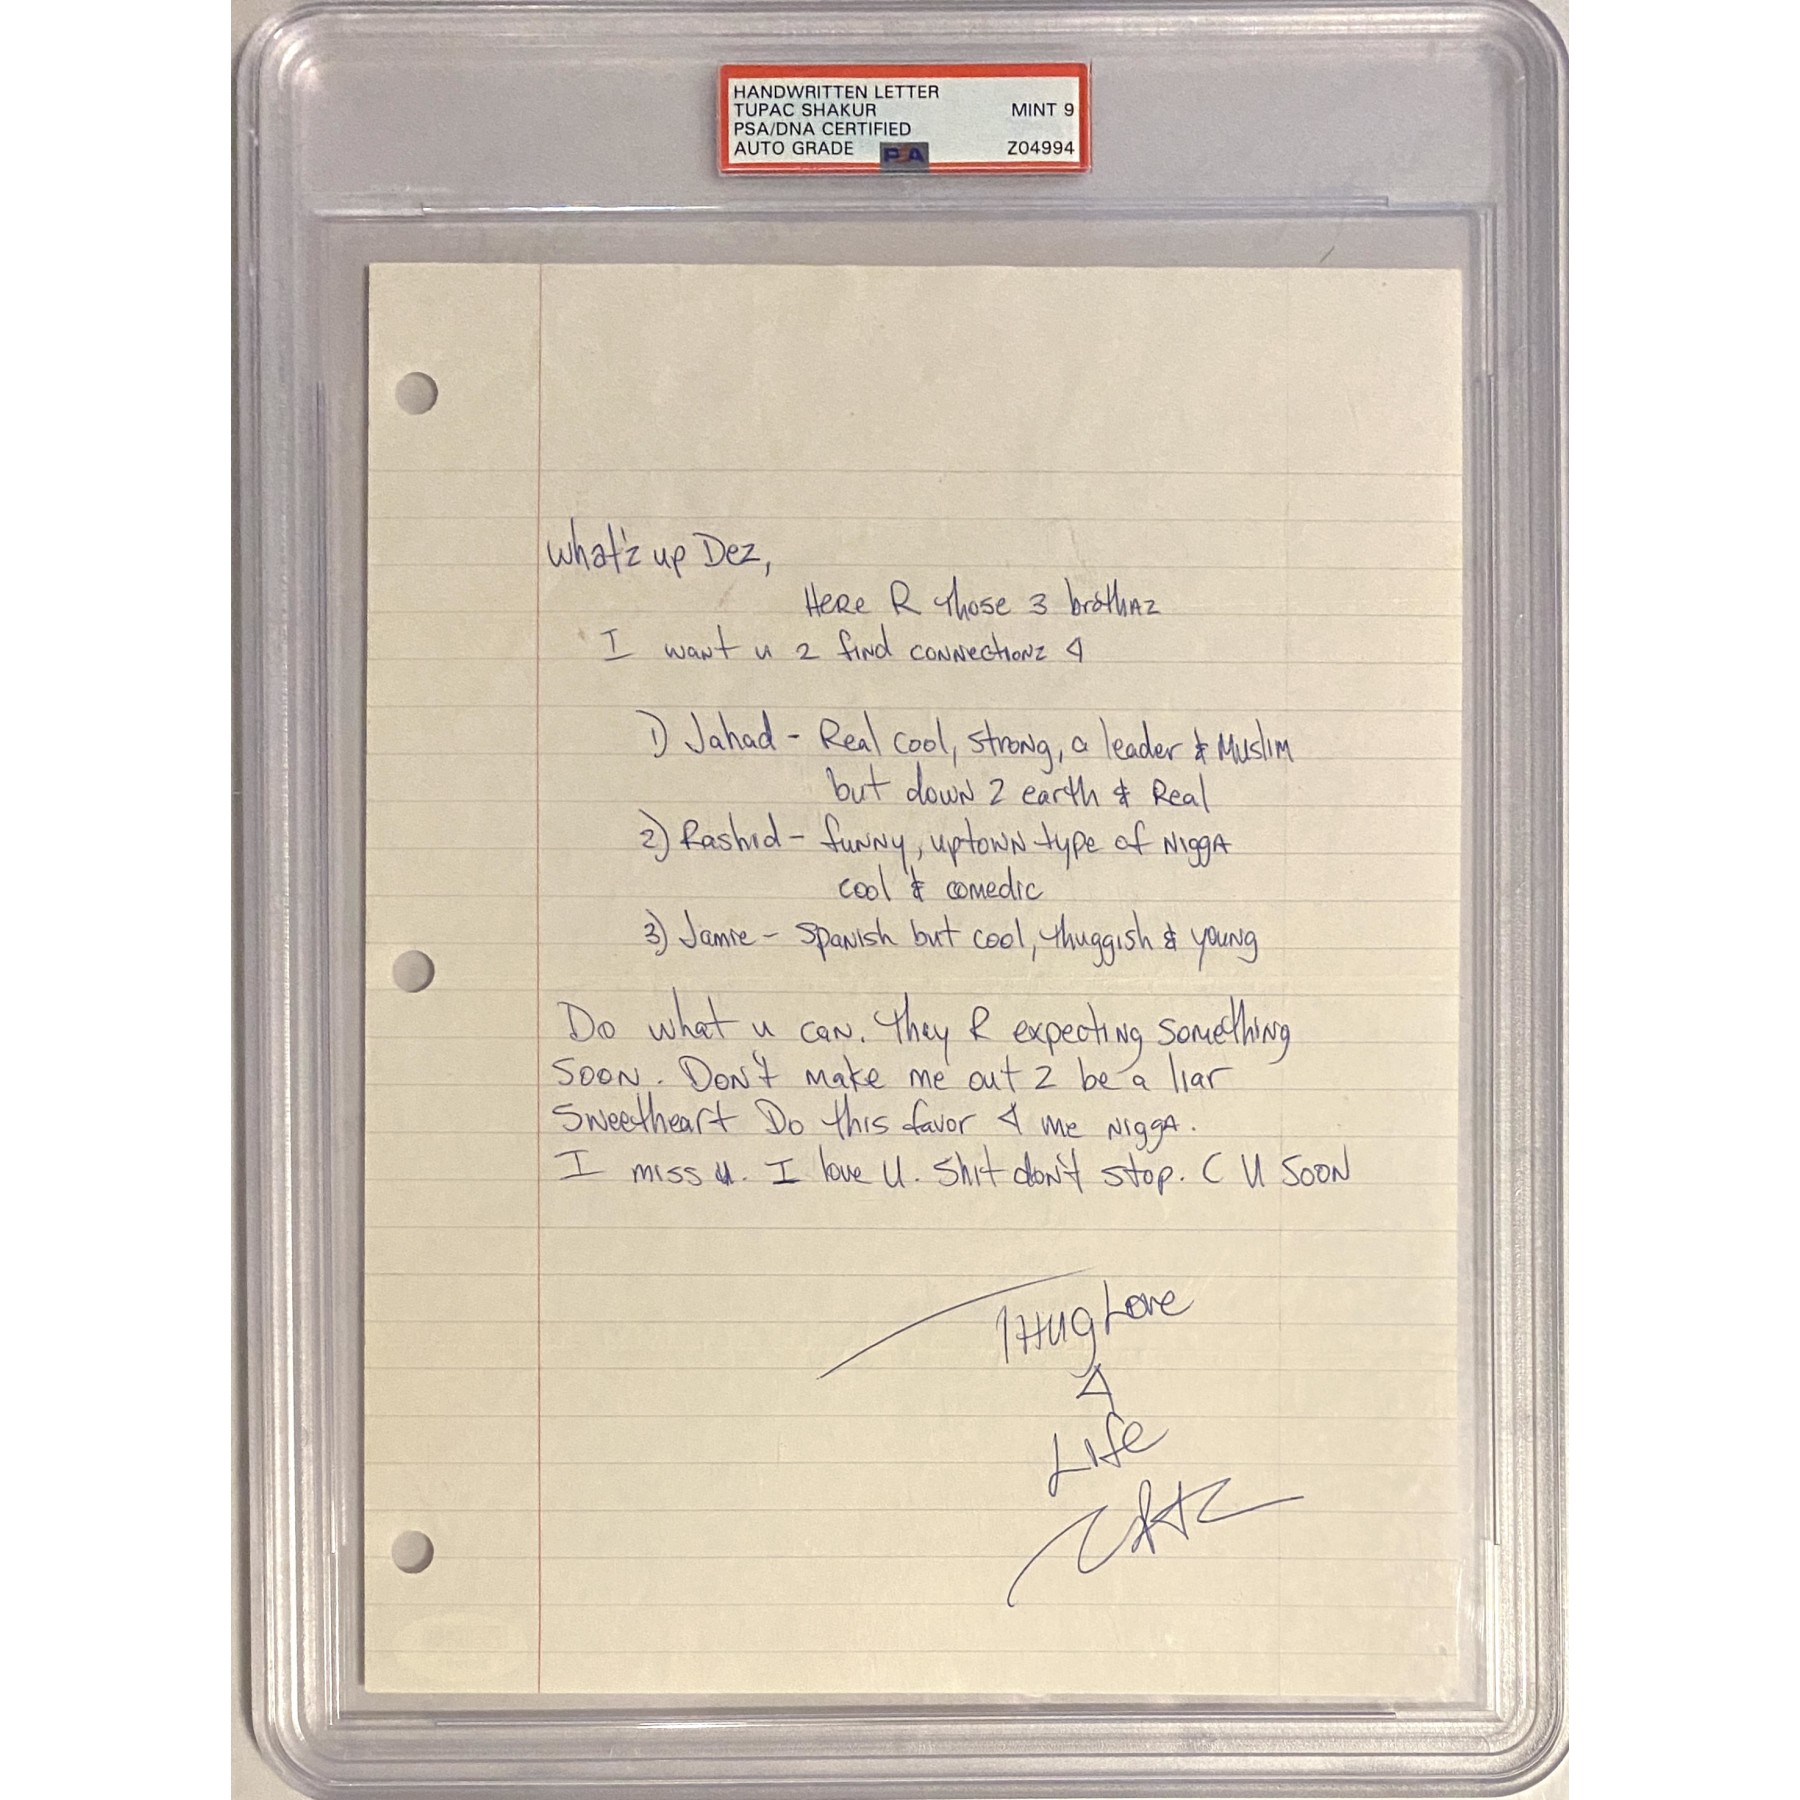 HANDWRITTEN LETTER
TUPAC SHAKUR MINT 9
PSA/DNA CERTIFIED
AUTO GRADE PSA Z04994
What'z up Dez,
Here R those 3 brothaz
I want u 2 find connectionz 4
1) Jahad - Real cool, strong, a leader & Muslim
but down 2 earth & Real
2) Rashid - funny, uptown type of Nigga
cool & comedic
3) Jamie - Spanish but cool, thuggish & young
Do what u can. They R expecting something
soon. Don't make me out 2 be a liar
Sweetheart Do this favor 4 me Nigga.
I miss u. I love U. Shit don't stop. C U Soon
Thug Love
4
Life